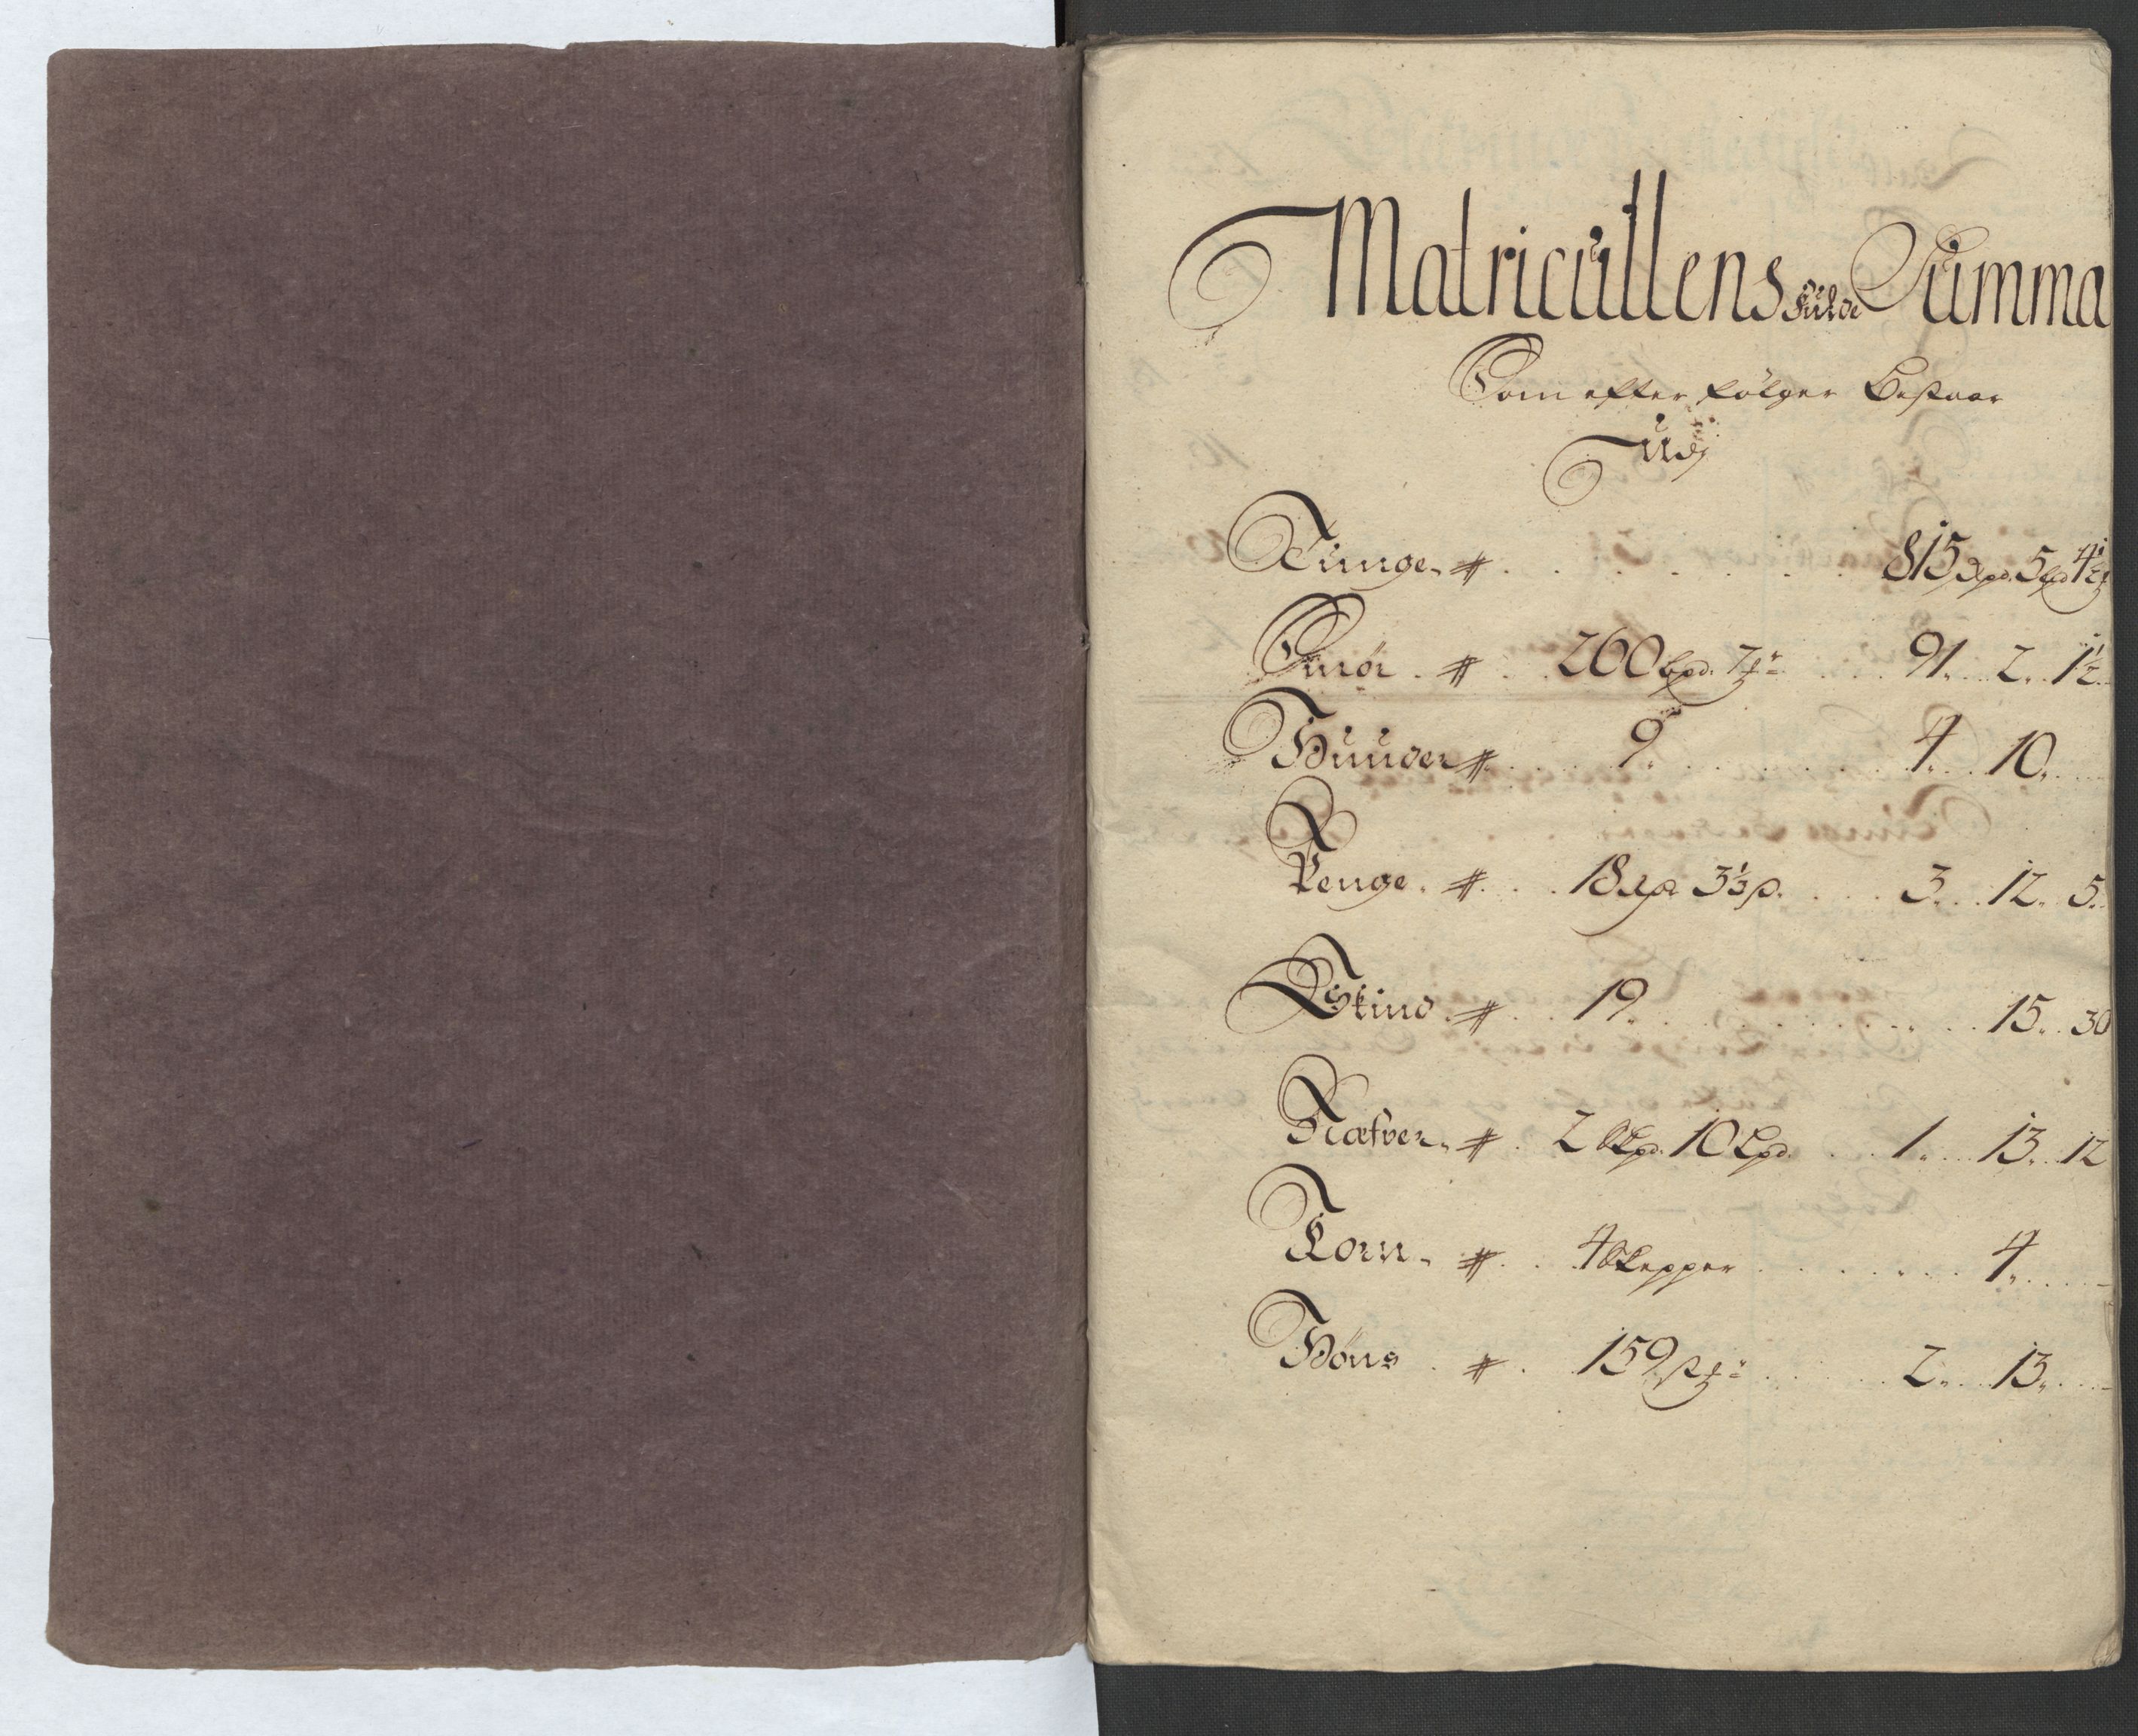 Matricullens fulde Summa
Som efter følger Bestaar
Udj
Tunge # . . . . . . . 815 Skpd. 5 Lpd 4½
Smör . # . . 260 bpd. 7 . . . 91. . 2. . 1½
Huuder # . . . 9. . . . . . . 4. . . 10. . .
Penge . # . . . 18 3⅓ s. . . . 3. . . 12. . 5.
Skind . # . . . 19. . . . . . . 15. . 30
Næfver. # . 2 Skpd. 10 Lpd. . . . 1. . . 13. . 12
Korn. # . . 4 Skepper . . . . . . 4. . . .
Höns . # . . 159 . . . . 2. . . 13. . .